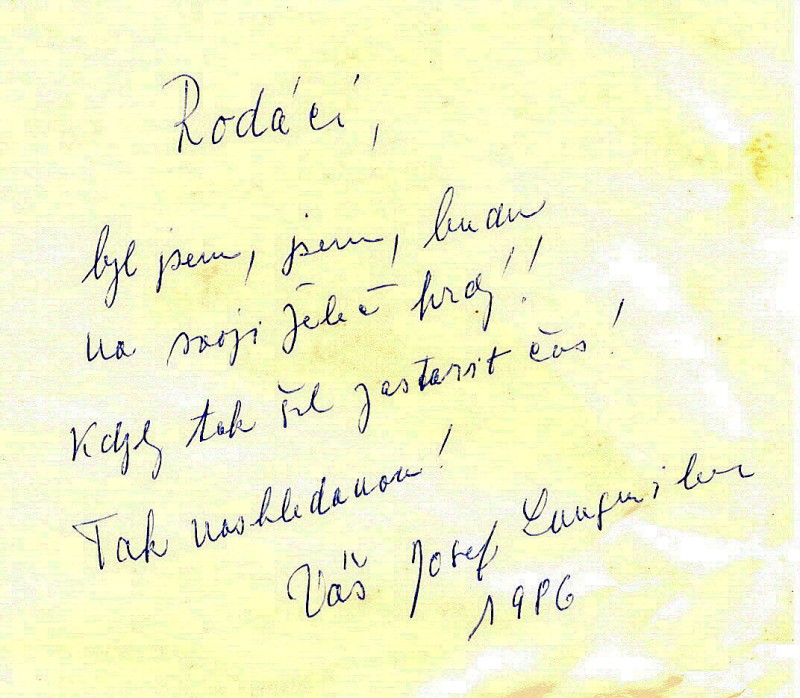 Rodáci,
byl jsem, jsem, budu
na svoji Želeč hrdý!!
Kdyby tak šel zastavit čas!
Tak nashledanou!
Váš Josef Langmiler
1986